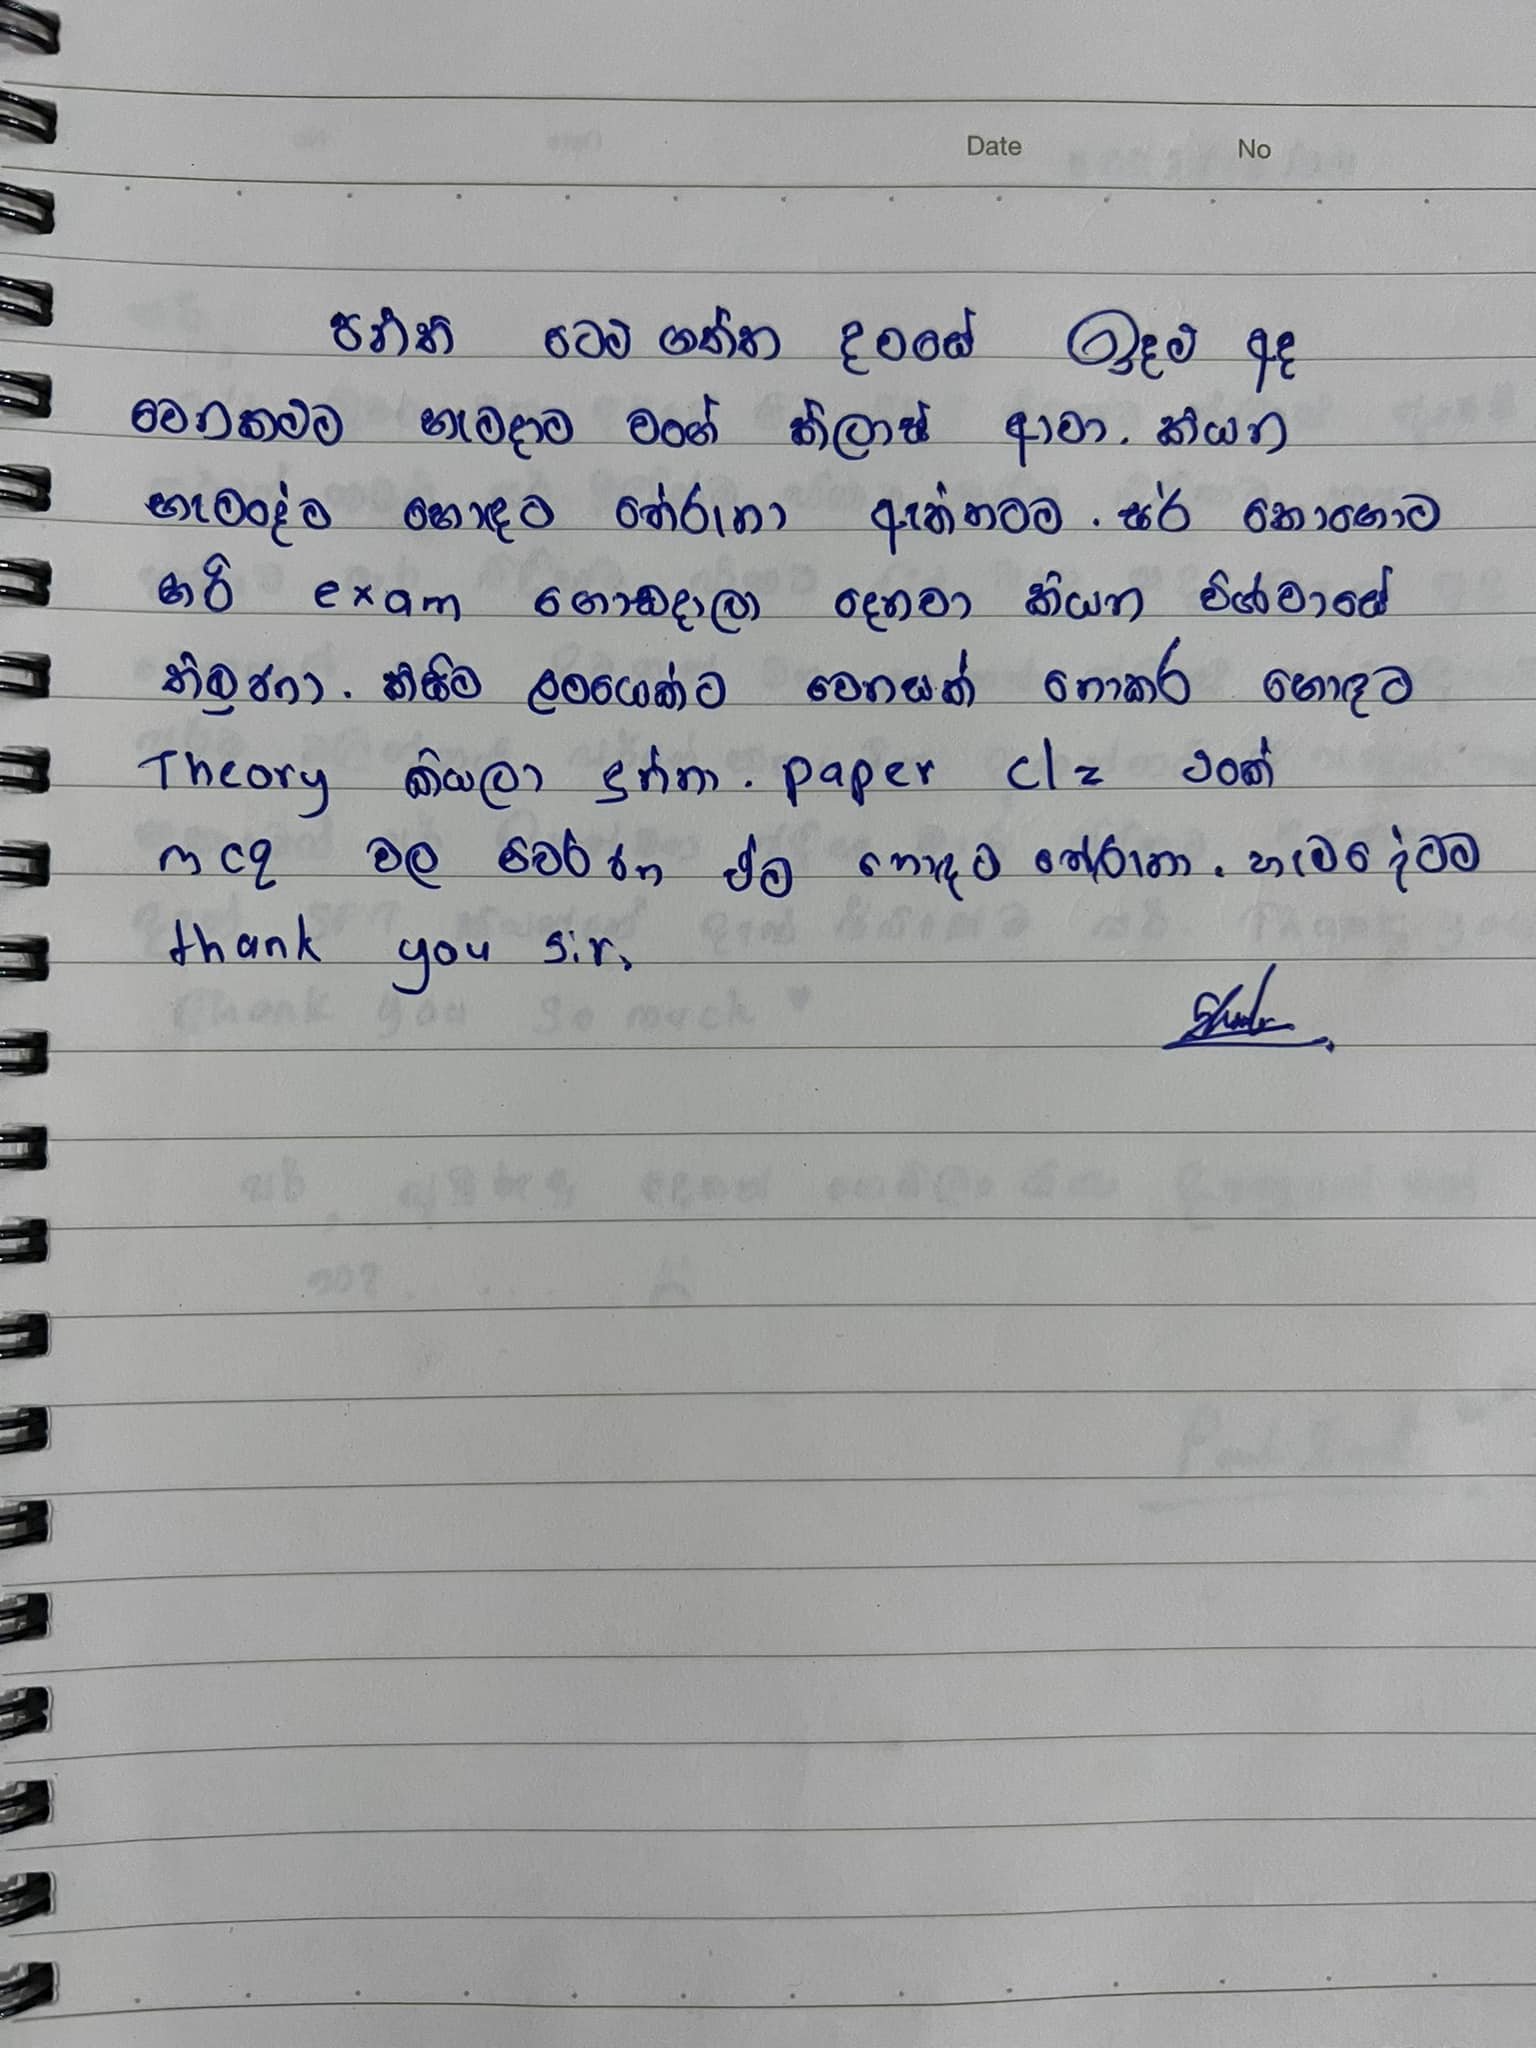 Date No
පන්ති එමට ගත්ත දවසේ ඉදම අද
වෙනකමම හැමදාම වගේ ක්ලාස් ආවා. කියන
හැමදේම හොඳට තේරුනා ඇත්තටම. සර් කොහොම
හරි exam ගොඩදාලා දෙනවා කියන විශ්වාසේ
තිබුණා. කිසිම ළමයෙක්ට වෙනසක් නොකර හොඳට
Theory කියලා දුන්නා. paper clz වගේ
mcq වල විවරණ එම හොඳට තේරුනා. හැමදේටම
thank you sir,